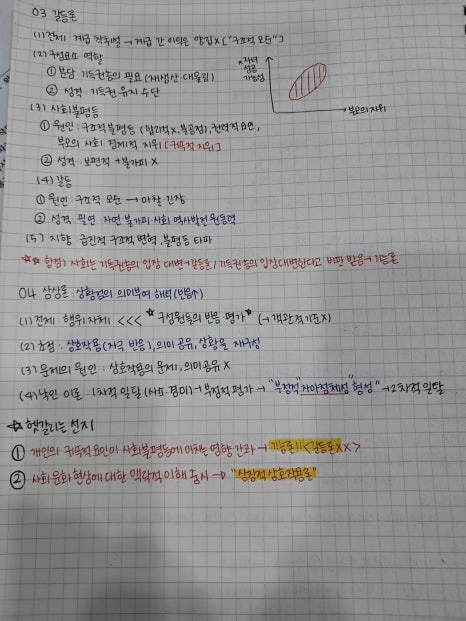 03 갈등론
(1) 전제: 계급 착취설 → 계급 간 이익은 양립 X ["구조적 모순"]
(2) 구성요소 역할
① 분담: 기득권층의 필요 (재생산 대물림)
② 성격: 기득권 유지 수단
자녀 성공 가능성
→ 부모의 지위
(3) 사회불평등
① 원인: 구조적 불평등 (합리적 X, 불공정), 권력적 요인,
부모의 사회·경제적 지위 [귀속적 지위]
② 성격: 보편적 → 불가피 X
(4) 갈등
① 원인: 구조적 모순 → 마찰, 긴장
② 성격: 필연·자연·불가피, 사회·역사발전 원동력
(5) 지향: 급진적 구조적 변혁, 불평등 타파
☆☆ 함정) 사회는 기득권층의 입장 대변→갈등론 / 기득권층의 입장 대변한다고 비판 받음→기능론
04 상상론: 상황정의, 의미부여, 해석 (반응↑)
(1) 전제: 행위 자체 <<< ☆구성원들의 반응·평가☆ (→ 객관적 기준 X)
(2) 초점: 상호작용 (자극 반응), 의미 공유, 상황을 재구성
(3) 문제의 원인: 상호작용의 문제, 의미 공유 X
(4) 낙인 이론: 1차적 일탈 (사소, 경미) → 부정적 평가 → "부정적 자아정체성" 형성 → 2차적 일탈
☆ 헷갈리는 선지
① 개인의 귀속적 요인이 사회불평등에 미치는 영향 간과 → 기능론!! <갈등론 XX>
② 사회 문화 현상에 대한 맥락적 이해 중시 → "상징적 상호작용론"